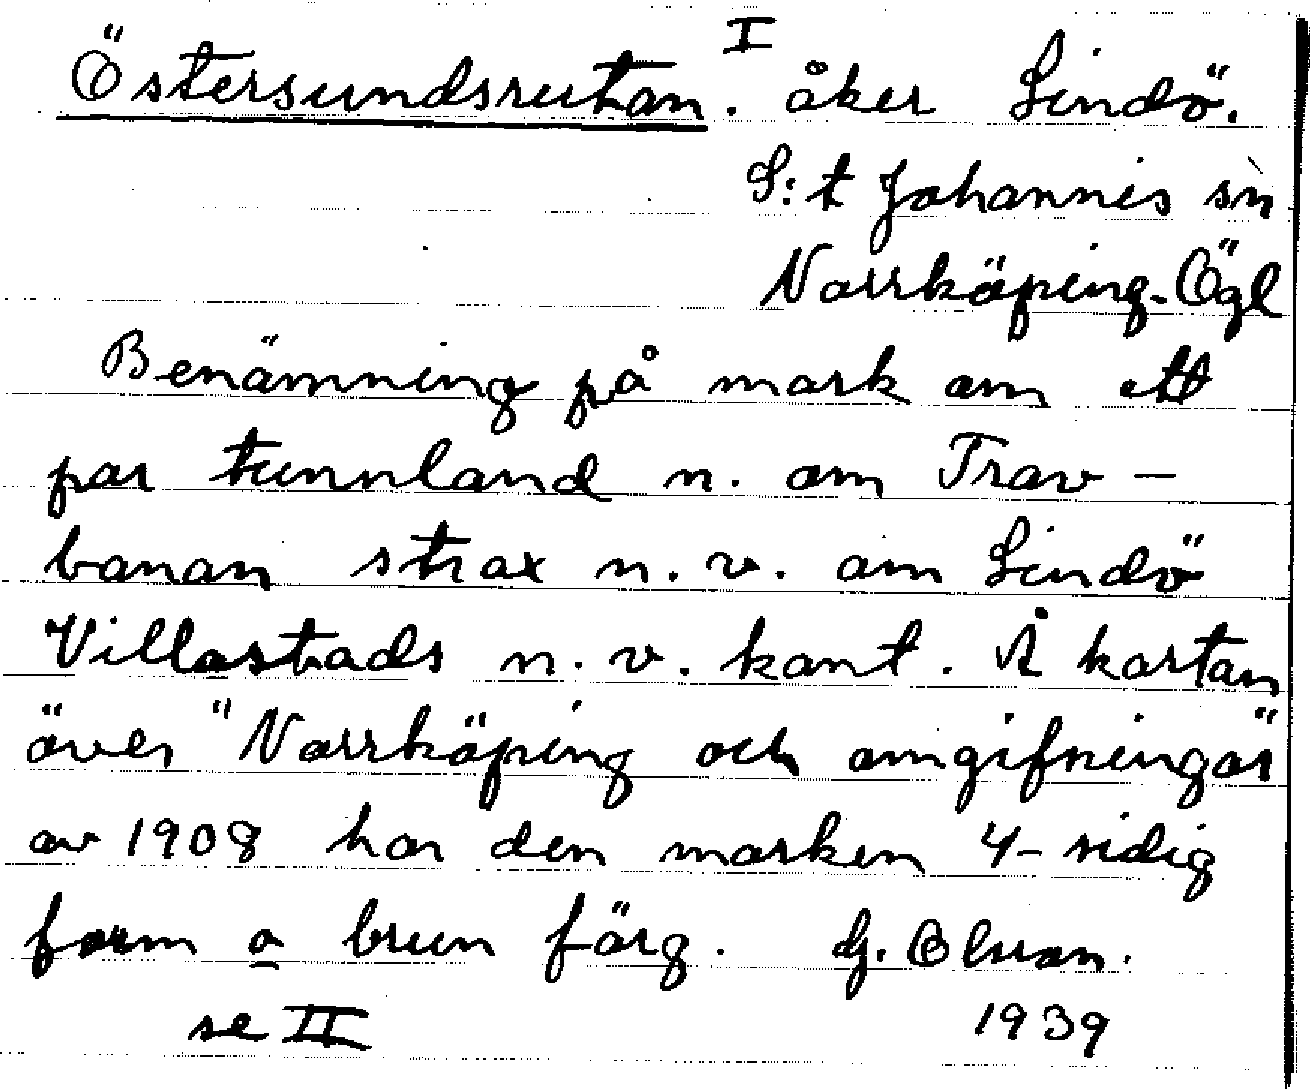 Östersundsrutan. I åker Lindö.
S:t Johannis sn
Norrköping. Ögl
Benämning på mark om ett
par tunnland n. om Trav-
banan strax n.v. om Lindö
Villastads n.v. kant. Å kartan
över "Norrköping och omgifningar"
av 1908 har den marken 4-sidig
form o brun färg. G. Olson.
se II 1939